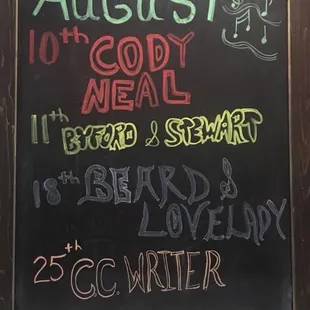 AUGUST
10th CODY
NEAL
11th BYFORD & STEWART
18th BEARD &
LOVELADY
25th C.C. WRITER